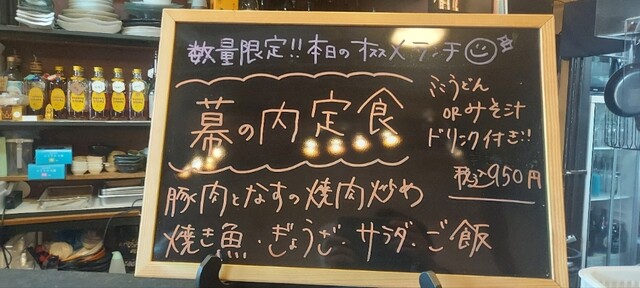 数量限定!!本日のオススメランチ
幕の内定食
ミニうどん
ORみそ汁
ドリンク付き!!
税込950円
豚肉となすの焼肉炒め
焼き魚・ぎょうざ・サラダ・ご飯